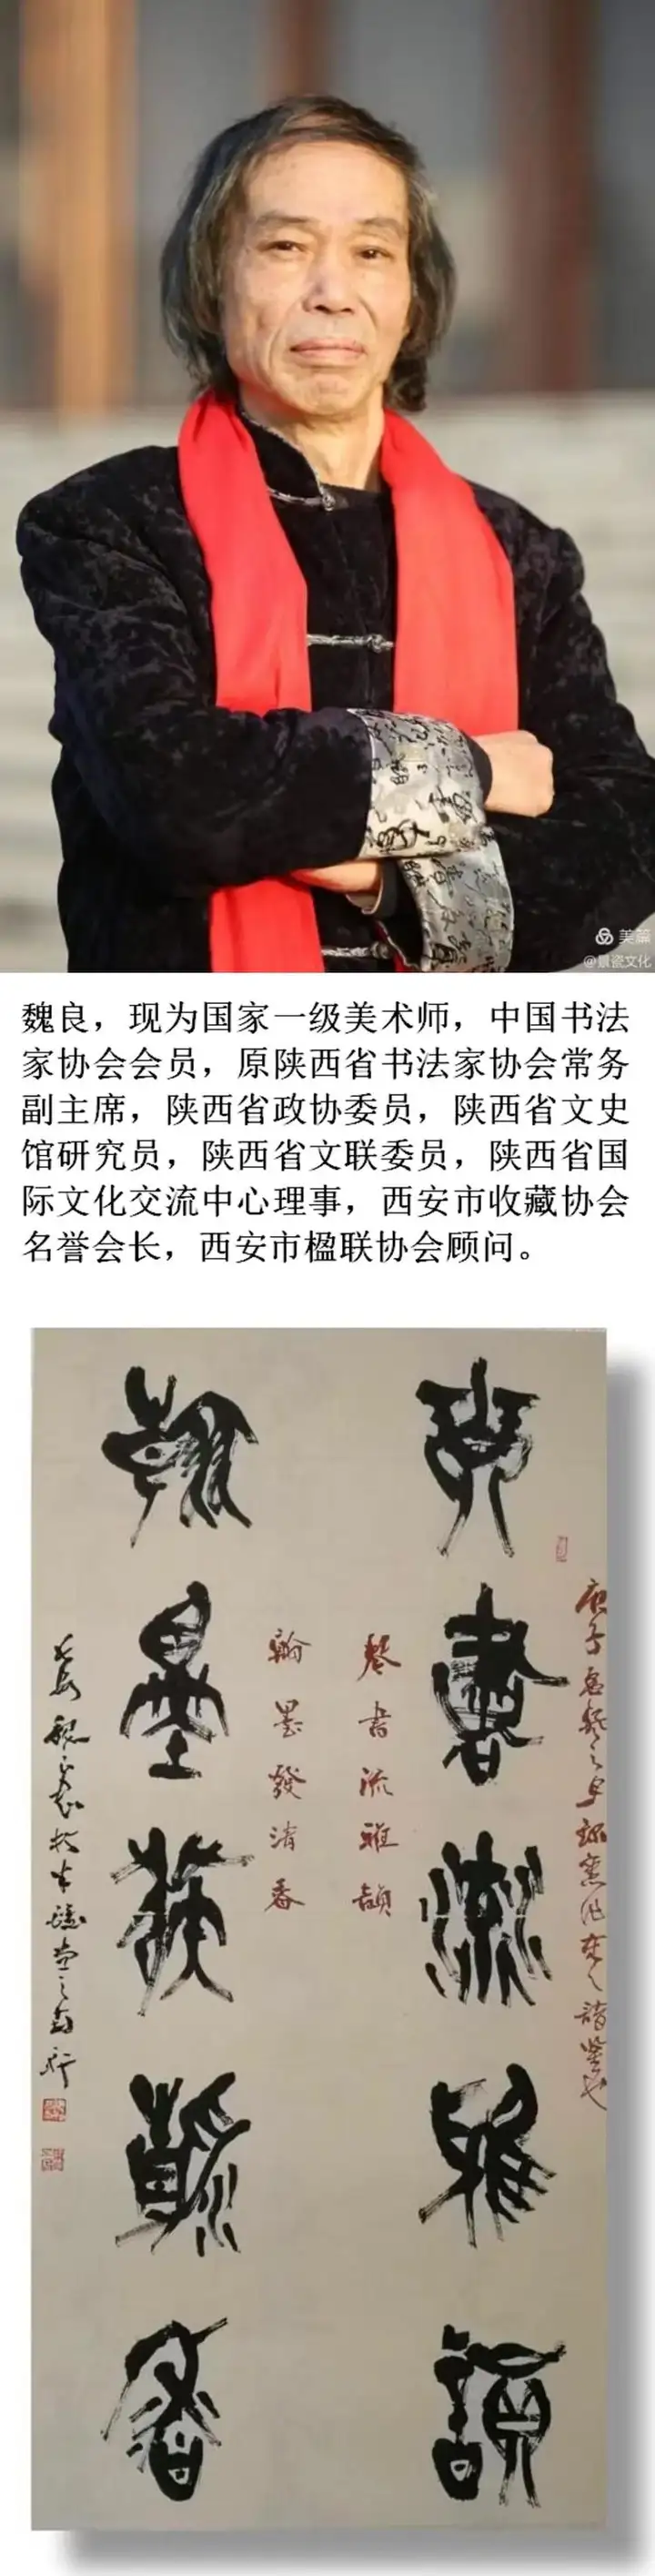 美篇
@景瓷文化
魏良，现为国家一级美术师，中国书法
家协会会员，原陕西省书法家协会常务
副主席，陕西省政协委员，陕西省文史
馆研究员，陕西省文联委员，陕西省国
际文化交流中心理事，西安市收藏协会
名誉会长，西安市楹联协会顾问。
琴書流雅韻
翰墨發清香
琴書流雅韻
翰墨發清香